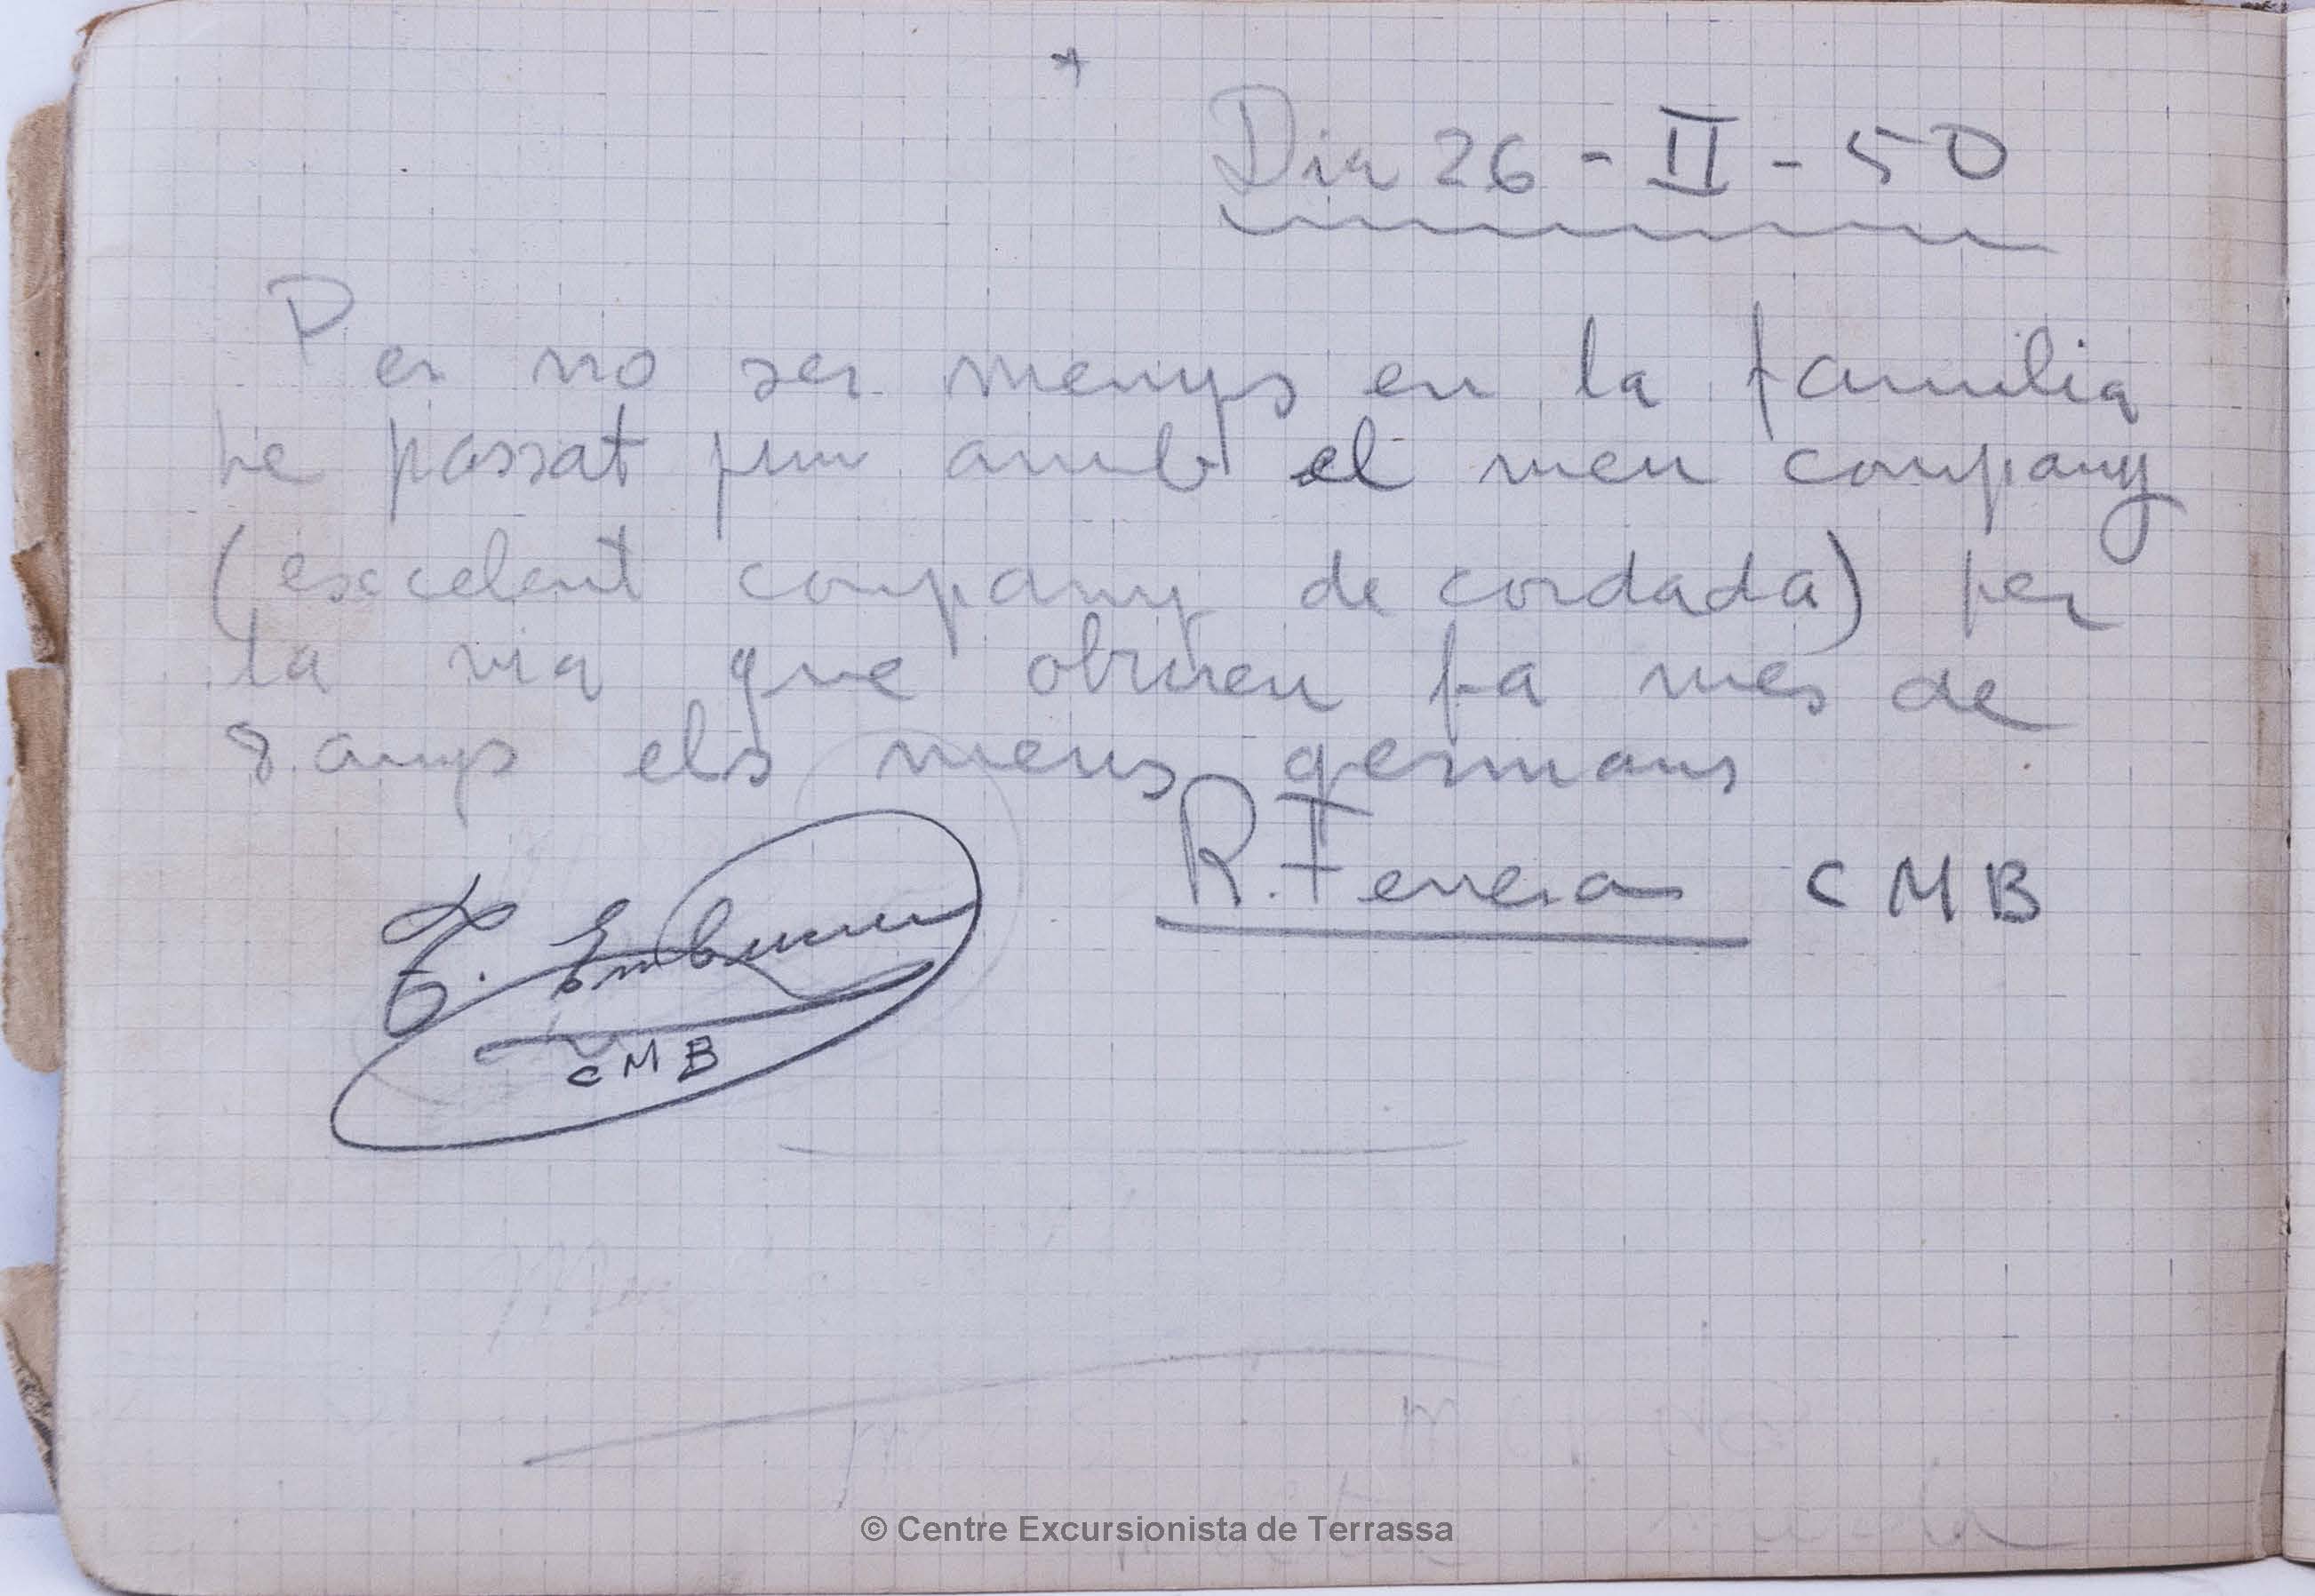 Dia 26 - II - 50
Per no ser menys en la familia
he passat junt amb el meu company
(esxcelent company de cordada) per
la via que obriren fa mes de
8 anys els meus germans
R. Ferrera CMB
CMB
© Centre Excursionista de Terrassa